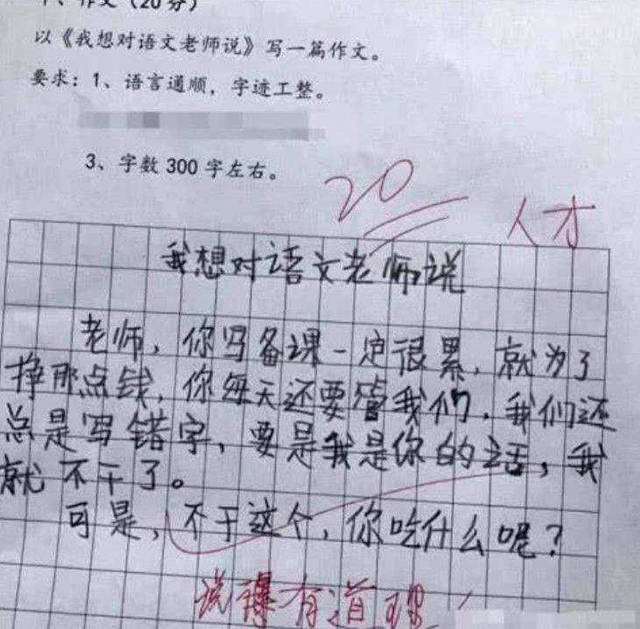 作文（20分）
以《我想对语文老师说》写一篇作文。
要求：1、语言通顺，字迹工整。
3、字数300字左右。
20
人才
我想对语文老师说
老师，你写备课一定很累，就为了
挣那点钱，你每天还要管我们，我们还
总是写错字，要是我是你的话，我
就不干了。
可是，不干这个，你吃什么呢？
说得有道理